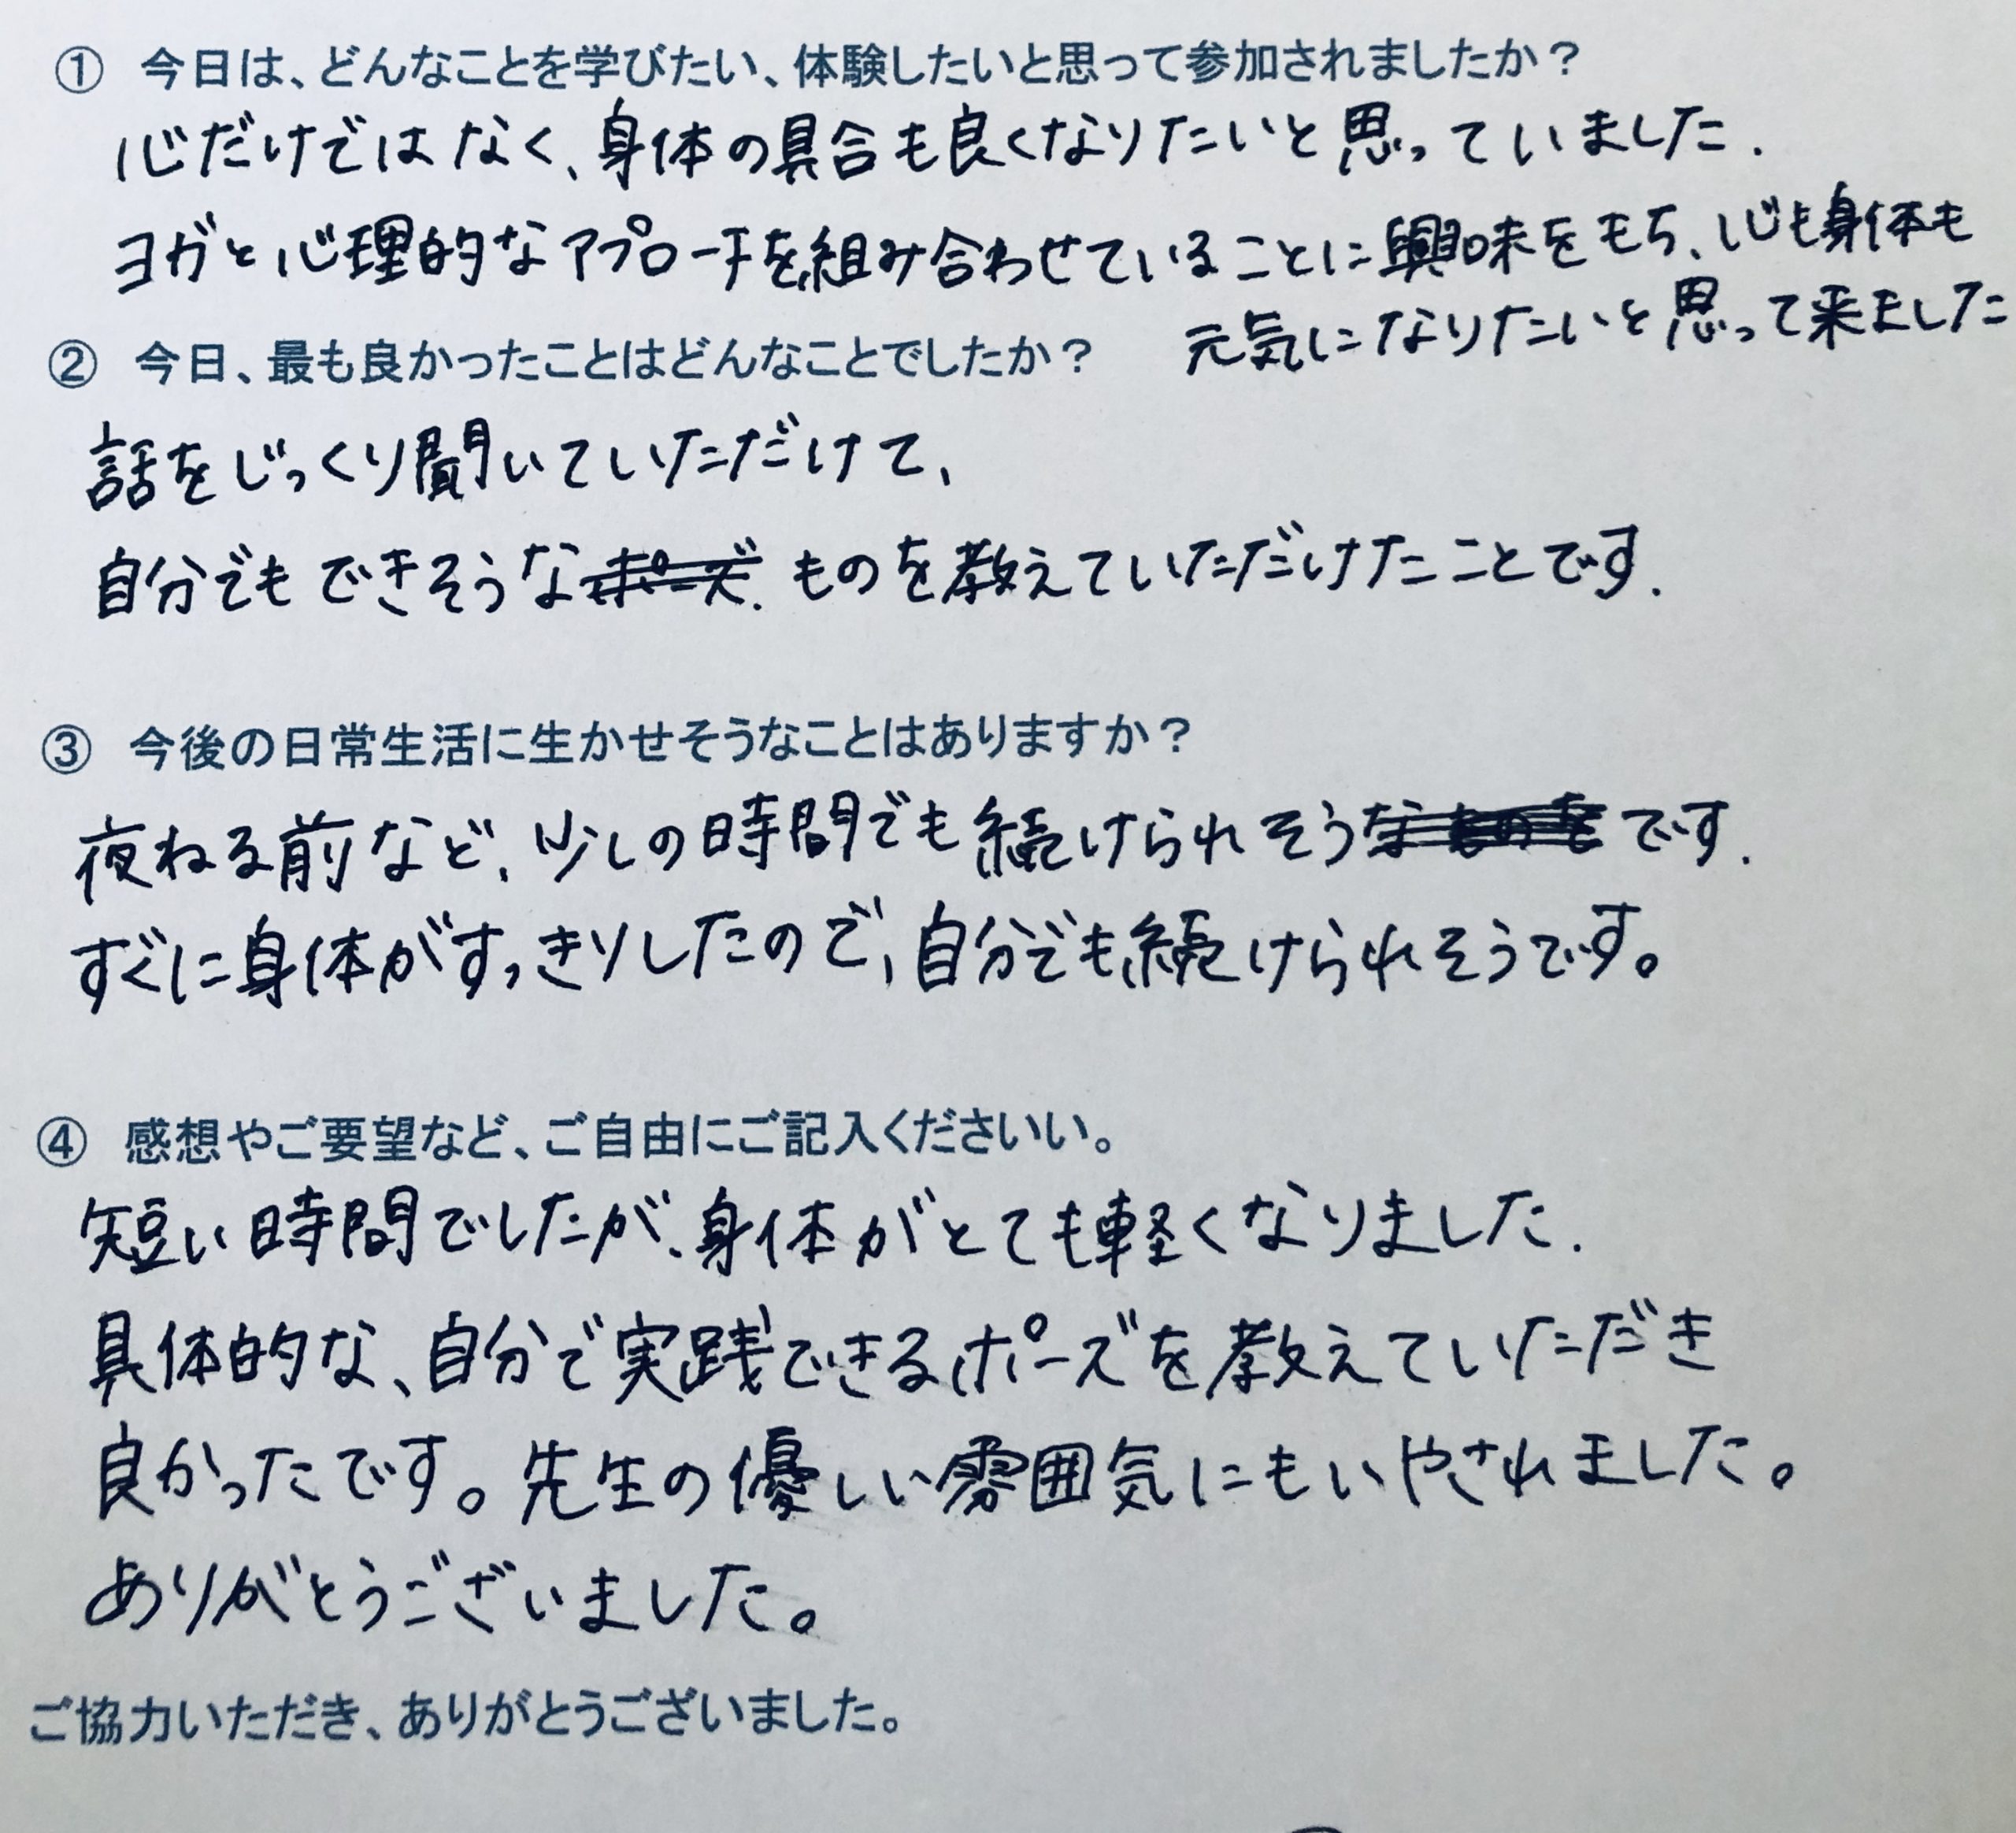 ① 今日は、どんなことを学びたい、体験したいと思って参加されましたか？
心だけではなく、身体の具合も良くなりたいと思っていました.
ヨガと心理的なアプローチを組み合わせていることに興味をもち、心も身体も
元気になりたいと思って来ました
② 今日、最も良かったことはどんなことでしたか？
話をじっくり聞いていただけて、
自分でもできそうなポーズ.ものを教えていただけたことです.
③ 今後の日常生活に生かせそうなことはありますか？
夜ねる前など、少しの時間でも続けられそうなものをです.
すぐに身体がすっきりしたので、自分でも続けられそうです。
④ 感想やご要望など、ご自由にご記入くださいい。
短い時間でしたが、身体がとても軽くなりました.
具体的な、自分で実践できるポーズを教えていただき
良かったです。先生の優しい雰囲気にもいやされました。
ありがとうございました。
ご協力いただき、ありがとうございました。